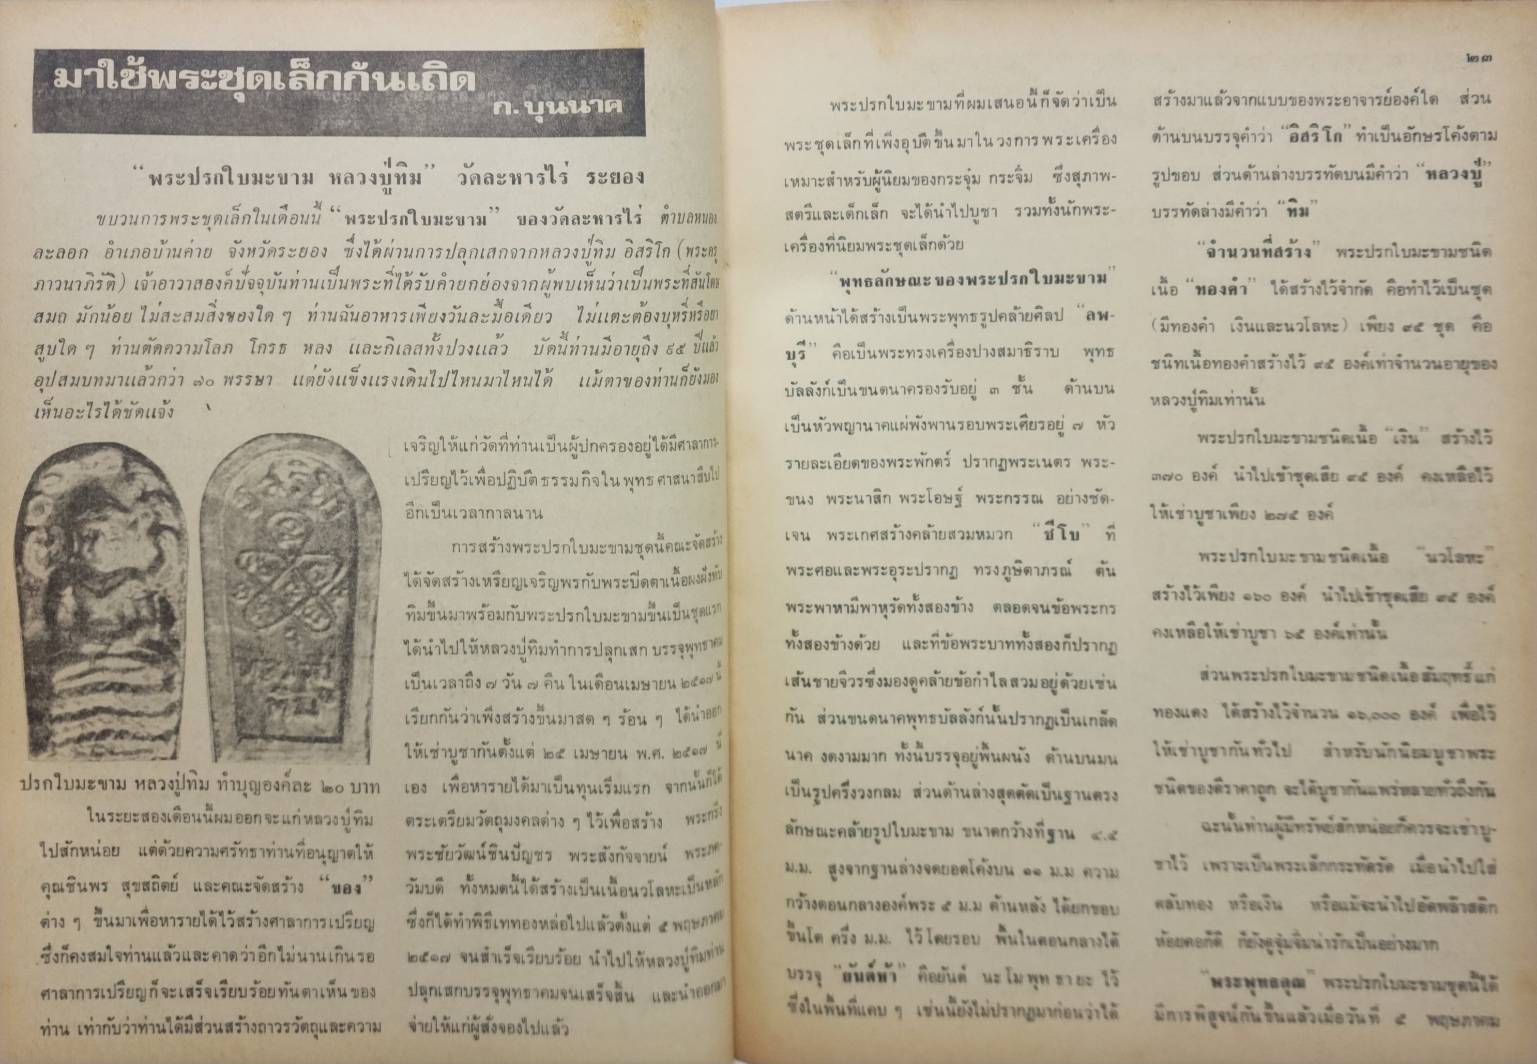 มาใช้พระชุดเล็กกันเถิด
ก. บุนนาค
“พระปรกใบมะขาม หลวงปู่ทิม” วัดละหารไร่ ระยอง
ขบวนการพระชุดเล็กในเดือนนี้ “พระปรกใบมะขาม” ของวัดละหารไร่ ตำบลหนอง
ละลอก อำเภอบ้านค่าย จังหวัดระยอง ซึ่งได้ผ่านการปลุกเสกจากหลวงปู่ทิม อิสริโก (พระครู
ภาวนาภิรัติ) เจ้าอาวาสองค์ปัจจุบันท่านเป็นพระที่ได้รับคำยกย่องจากผู้พบเห็นว่าเป็นพระที่สันโดษ
สมถ มักน้อย ไม่สะสมสิ่งของใด ๆ ท่านฉันอาหารเพียงวันละมื้อเดียว ไม่แตะต้องบุหรี่หรือยา
สูบใด ๆ ท่านตัดความโลภ โกรธ หลง และกิเลสทั้งปวงแล้ว บัดนี้ท่านมีอายุถึง ๙๕ ปีแล้ว
อุปสมบทมาแล้วกว่า ๗๐ พรรษา แต่ยังแข็งแรงเดินไปไหนมาไหนได้ แม้ตาของท่านก็ยังมอง
เห็นอะไรได้ชัดแจ้ง
ปรกใบมะขาม หลวงปู่ทิม ทำบุญองค์ละ ๒๐ บาท
ในระยะสองเดือนนี้ผมออกจะแก่หลวงปู่ทิม
ไปสักหน่อย แต่ด้วยความศรัทธาท่านที่อนุญาตให้
คุณชินพร สุขสถิตย์ และคณะจัดสร้าง “ของ”
ต่าง ๆ ขึ้นมาเพื่อหารายได้ไว้สร้างศาลาการเปรียญ
ซึ่งก็คงสมใจท่านแล้วและคาดว่าอีกไม่นานเกินรอ
ศาลาการเปรียญก็จะเสร็จเรียบร้อยทันตาเห็นของ
ท่าน เท่ากับว่าท่านได้มีส่วนสร้างถาวรวัตถุและความ
เจริญให้แก่วัดที่ท่านเป็นผู้ปกครองอยู่ได้มีศาลาการ-
เปรียญไว้เพื่อปฏิบัติธรรมกิจในพุทธศาสนาสืบไป
อีกเป็นเวลากาลนาน
การสร้างพระปรกใบมะขามชุดนี้คณะจัดสร้าง
ได้จัดสร้างเหรียญเจริญพรกับพระปิดตาเนื้อผงฝังทับ
ทิมขึ้นมาพร้อมกับพระปรกใบมะขามขึ้นเป็นชุดแรก
ได้นำไปให้หลวงปู่ทิมทำการปลุกเสก บรรจุพุทธาคม
เป็นเวลาถึง ๗ วัน ๗ คืน ในเดือนเมษายน ๒๕๑๗ นี้
เรียกกันว่าเพิ่งสร้างขึ้นมาสด ๆ ร้อน ๆ ได้นำออก
ให้เช่าบูชากันตั้งแต่ ๒๕ เมษายน พ.ศ. ๒๕๑๗ นี้
เอง เพื่อหารายได้มาเป็นทุนเริ่มแรก จากนั้นก็ได้
ตระเตรียมวัตถุมงคลต่าง ๆ ไว้เพื่อสร้าง พระกริ่ง
พระชัยวัฒน์ชินบัญชร พระสังกัจจายน์ พระภค-
วัมบดี ทั้งหมดนี้ได้สร้างเป็นเนื้อนวโลหะเป็นหลัก
ซึ่งก็ได้ทำพิธีเททองหล่อไปแล้วตั้งแต่ ๕ พฤษภาคม
๒๕๑๗ จนสำเร็จเรียบร้อย นำไปให้หลวงปู่ทิมท่าน
ปลุกเสกบรรจุพุทธาคมจนเสร็จสิ้น และนำออกมา
จ่ายให้แก่ผู้สั่งจองไปแล้ว
๒๓
พระปรกใบมะขามที่ผมเสนอนี้ก็จัดว่าเป็น
พระชุดเล็กที่เพิ่งอุบัติขึ้นมาในวงการพระเครื่อง
เหมาะสำหรับผู้นิยมของกระจุ๋ม กระจิ๋ม ซึ่งสุภาพ-
สตรีและเด็กเล็ก จะได้นำไปบูชา รวมทั้งนักพระ-
เครื่องที่นิยมพระชุดเล็กด้วย
“พุทธลักษณะของพระปรกใบมะขาม”
ด้านหน้าได้สร้างเป็นพระพุทธรูปคล้ายศิลป “ลพ-
บุรี” คือเป็นพระทรงเครื่องปางสมาธิราบ พุทธ
บัลลังก์เป็นขนดนาครองรับอยู่ ๓ ชั้น ด้านบน
เป็นหัวพญานาคแผ่พังพานรอบพระเศียรอยู่ ๗ หัว
รายละเอียดของพระพักตร์ ปรากฏพระเนตร พระ-
ขนง พระนาสิก พระโอษฐ์ พระกรรณ อย่างชัด-
เจน พระเกศสร้างคล้ายสวมหมวก “ชีโบ” ที่
พระศอและพระอุระปรากฏ ทรงภูษิตาภรณ์ ต้น
พระพาหามีพาหุรัดทั้งสองข้าง ตลอดจนข้อพระกร
ทั้งสองข้างด้วย และที่ข้อพระบาททั้งสองก็ปรากฏ
เส้นชายจิวรซึ่งมองดูคล้ายข้อกำไลสวมอยู่ด้วยเช่น
กัน ส่วนขนดนาคพุทธบัลลังก์นั้นปรากฏเป็นเกล็ด
นาค งดงามมาก ทั้งนี้บรรจุอยู่พื้นผนัง ด้านบนมน
เป็นรูปครึ่งวงกลม ส่วนด้านล่างสุดตัดเป็นฐานตรง
ลักษณะคล้ายรูปใบมะขาม ขนาดกว้างที่ฐาน ๔.๕
ม.ม. สูงจากฐานล่างจดยอดโค้งบน ๑๑ ม.ม ความ
กว้างตอนกลางองค์พระ ๕ ม.ม ด้านหลัง ได้ยกขอบ
ขึ้นโต ครึ่ง ม.ม. ไว้โดยรอบ พื้นในตอนกลางได้
บรรจุ “ยันต์ห้า” คือยันต์ นะ โม พุท ธา ยะ ไว้
ซึ่งในพื้นที่แคบ ๆ เช่นนี้ยังไม่ปรากฏมาก่อนว่าได้
สร้างมาแล้วจากแบบของพระอาจารย์องค์ใด ส่วน
ด้านบนบรรจุคำว่า “อิสริโก” ทำเป็นอักษรโค้งตาม
รูปขอบ ส่วนด้านล่างบรรทัดบนมีคำว่า “หลวงปู่”
บรรทัดล่างมีคำว่า “ทิม”
“จำนวนที่สร้าง” พระปรกใบมะขามชนิด
เนื้อ “ทองคำ” ได้สร้างไว้จำกัด คือทำไว้เป็นชุด
(มีทองคำ เงินและนวโลหะ) เพียง ๙๕ ชุด คือ
ชนิดเนื้อทองคำสร้างไว้ ๙๕ องค์เท่าจำนวนอายุของ
หลวงปู่ทิมเท่านั้น
พระปรกใบมะขามชนิดเนื้อ “เงิน” สร้างไว้
๓๗๐ องค์ นำไปเข้าชุดเสีย ๙๕ องค์ คงเหลือไว้
ให้เช่าบูชาเพียง ๒๗๕ องค์
พระปรกใบมะขามชนิดเนื้อ “นวโลหะ”
สร้างไว้เพียง ๑๖๐ องค์ นำไปเข้าชุดเสีย ๙๕ องค์
คงเหลือให้เช่าบูชา ๖๕ องค์เท่านั้น
ส่วนพระปรกใบมะขามชนิดเนื้อสัมฤทธิ์แก่
ทองแดง ได้สร้างไว้จำนวน ๑๖,๐๐๐ องค์ เพื่อไว้
ให้เช่าบูชากันทั่วไป สำหรับนักนิยมบูชาพระ
ชนิดของดีราคาถูก จะได้บูชากันแพร่หลายทั่วถึงกัน
ฉะนั้นท่านผู้มีทรัพย์สักหน่อยก็ควรจะเช่าบู-
ชาไว้ เพราะเป็นพระเล็กกระทัดรัด เมื่อนำไปใส่
ตลับทอง หรือเงิน หรือแม้จะนำไปอัดพลาสติก
ห้อยคอก็ดี ก็ยังดูจุ๋มจิ๋มน่ารักเป็นอย่างมาก
“พระพุทธคุณ” พระปรกใบมะขามชุดนี้ได้
มีการพิสูจน์กันขึ้นแล้วเมื่อวันที่ ๕ พฤษภาคม